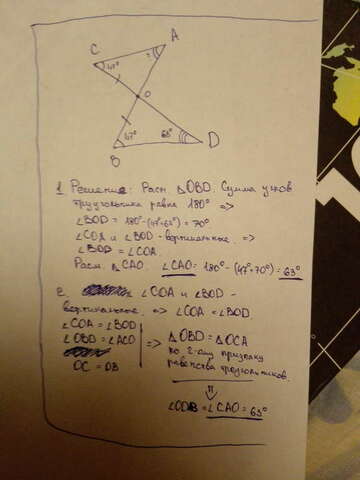 A
C
47°
?
O
47°
63°
B
D
1. Решение: Расм. △OBD. Сумма углов
треугольника равна 180° =>
∠BOD = 180° - (47° + 63°) = 70°
∠COA и ∠BOD - вертикальные. =>
∠BOD = ∠COA.
Расм. △CAO. ∠CAO = 180° - (47° + 70°) = 63°
2. ∠COA и ∠BOD -
вертикальные. => ∠COA = ∠BOD.
∠COA = ∠BOD
∠OBD = ∠ACO
OC = OB
=> △OBD = △OCA
по 2-ому признаку
равенства треугольников.
⇓
∠ODB = ∠CAO = 63°